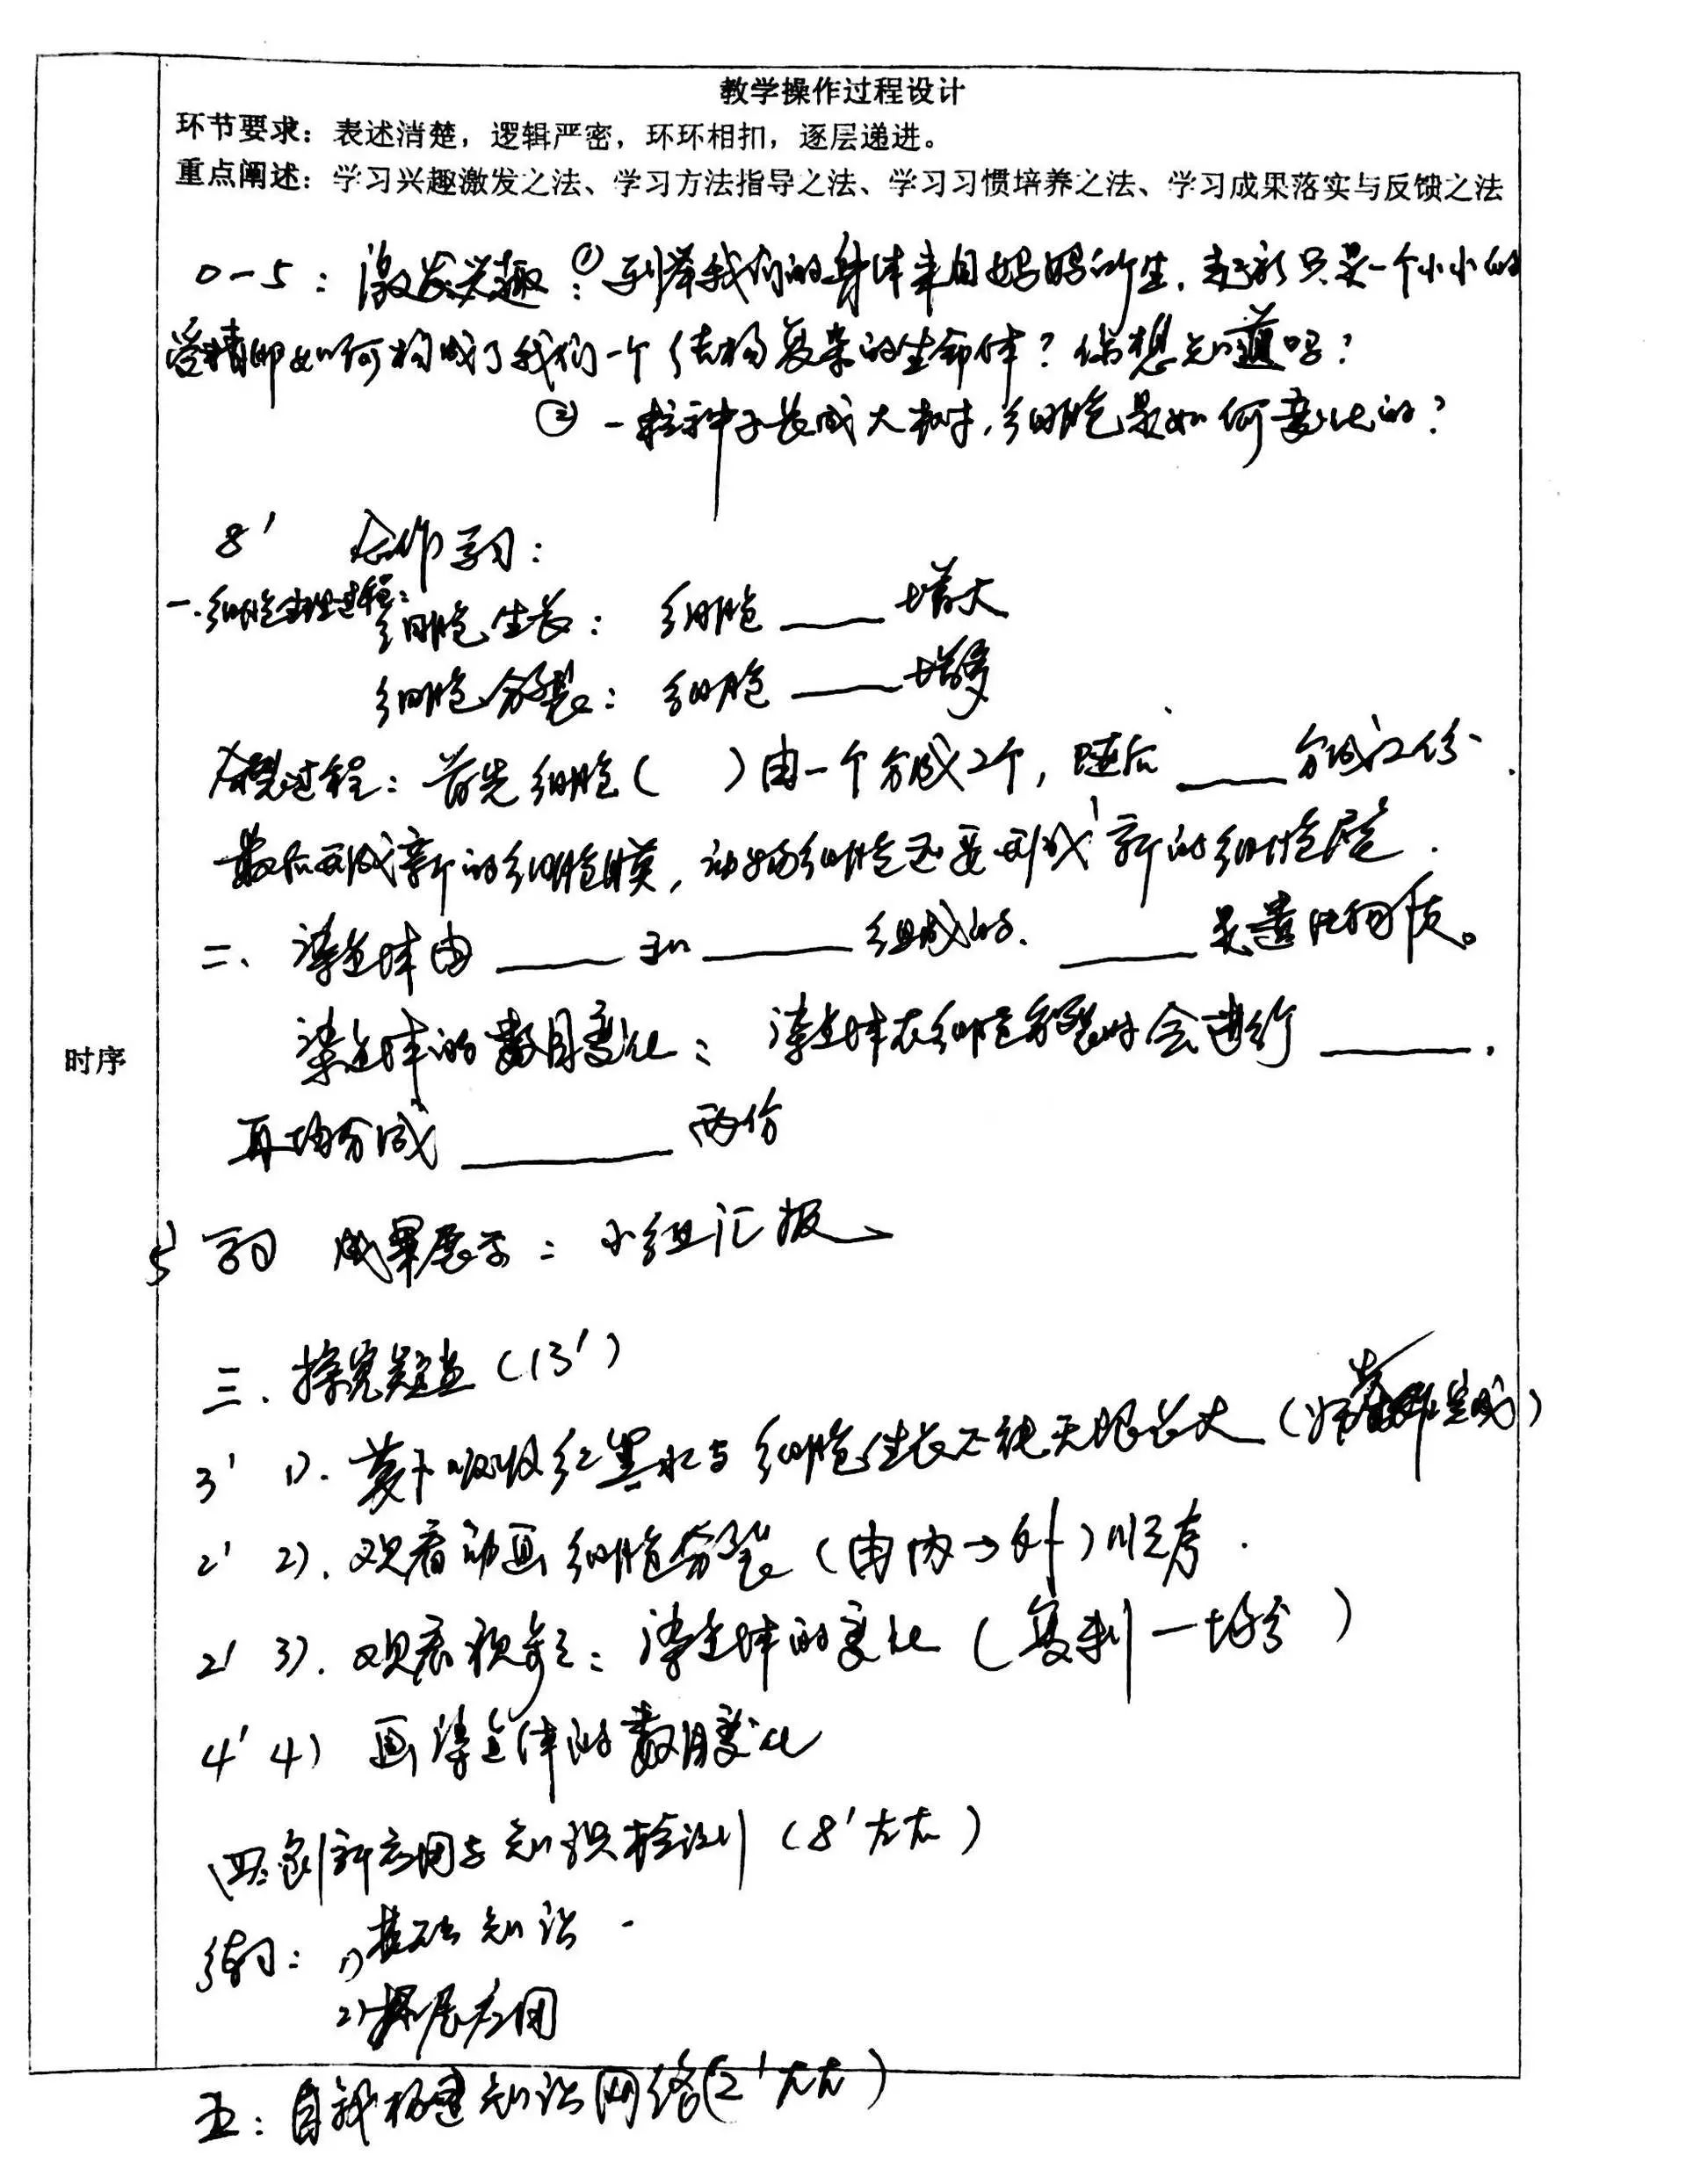 教学操作过程设计
环节要求：表述清楚，逻辑严密，环环相扣，逐层递进。
重点阐述：学习兴趣激发之法、学习方法指导之法、学习习惯培养之法、学习成果落实与反馈之法
0-5：激发兴趣：①列举我们的身体来自妈妈的生，起初只是一个小小的
受精卵如何构成了我们一个结构复杂的生命体？你想知道吗？
② 一粒种子长成大树，细胞是如何变化的？
8′ 合作学习：
一.细胞生理过程：
细胞生长：细胞____增大
细胞分裂：细胞____增多
分裂过程：首先细胞（ ）由一个分成2个，随后____分成2份、
最后形成新的细胞膜，动物细胞还要形成新的细胞壁.
二、染色体由____和____组成的.____是遗传物质。
时序
染色体的数目变化：染色体在细胞分裂时会进行____，
再均分成____两份
5′ 学习 成果展示：小组汇报、
三.探究疑点（13′）
3′ 1）.萝卜吸收红墨水与细胞生长不能无限长大（完成）
2′ 2）.观看动画细胞分裂（由内→外）顺序.
2′ 3）.观看视频：染色体的变化（复制一均分）
4′ 4）画染色体的数目变化
四.创新应用与知识检测（8′左右）
练习：1)基础知识
2)拓展应用
五：自我构建知识网络（2′左右）